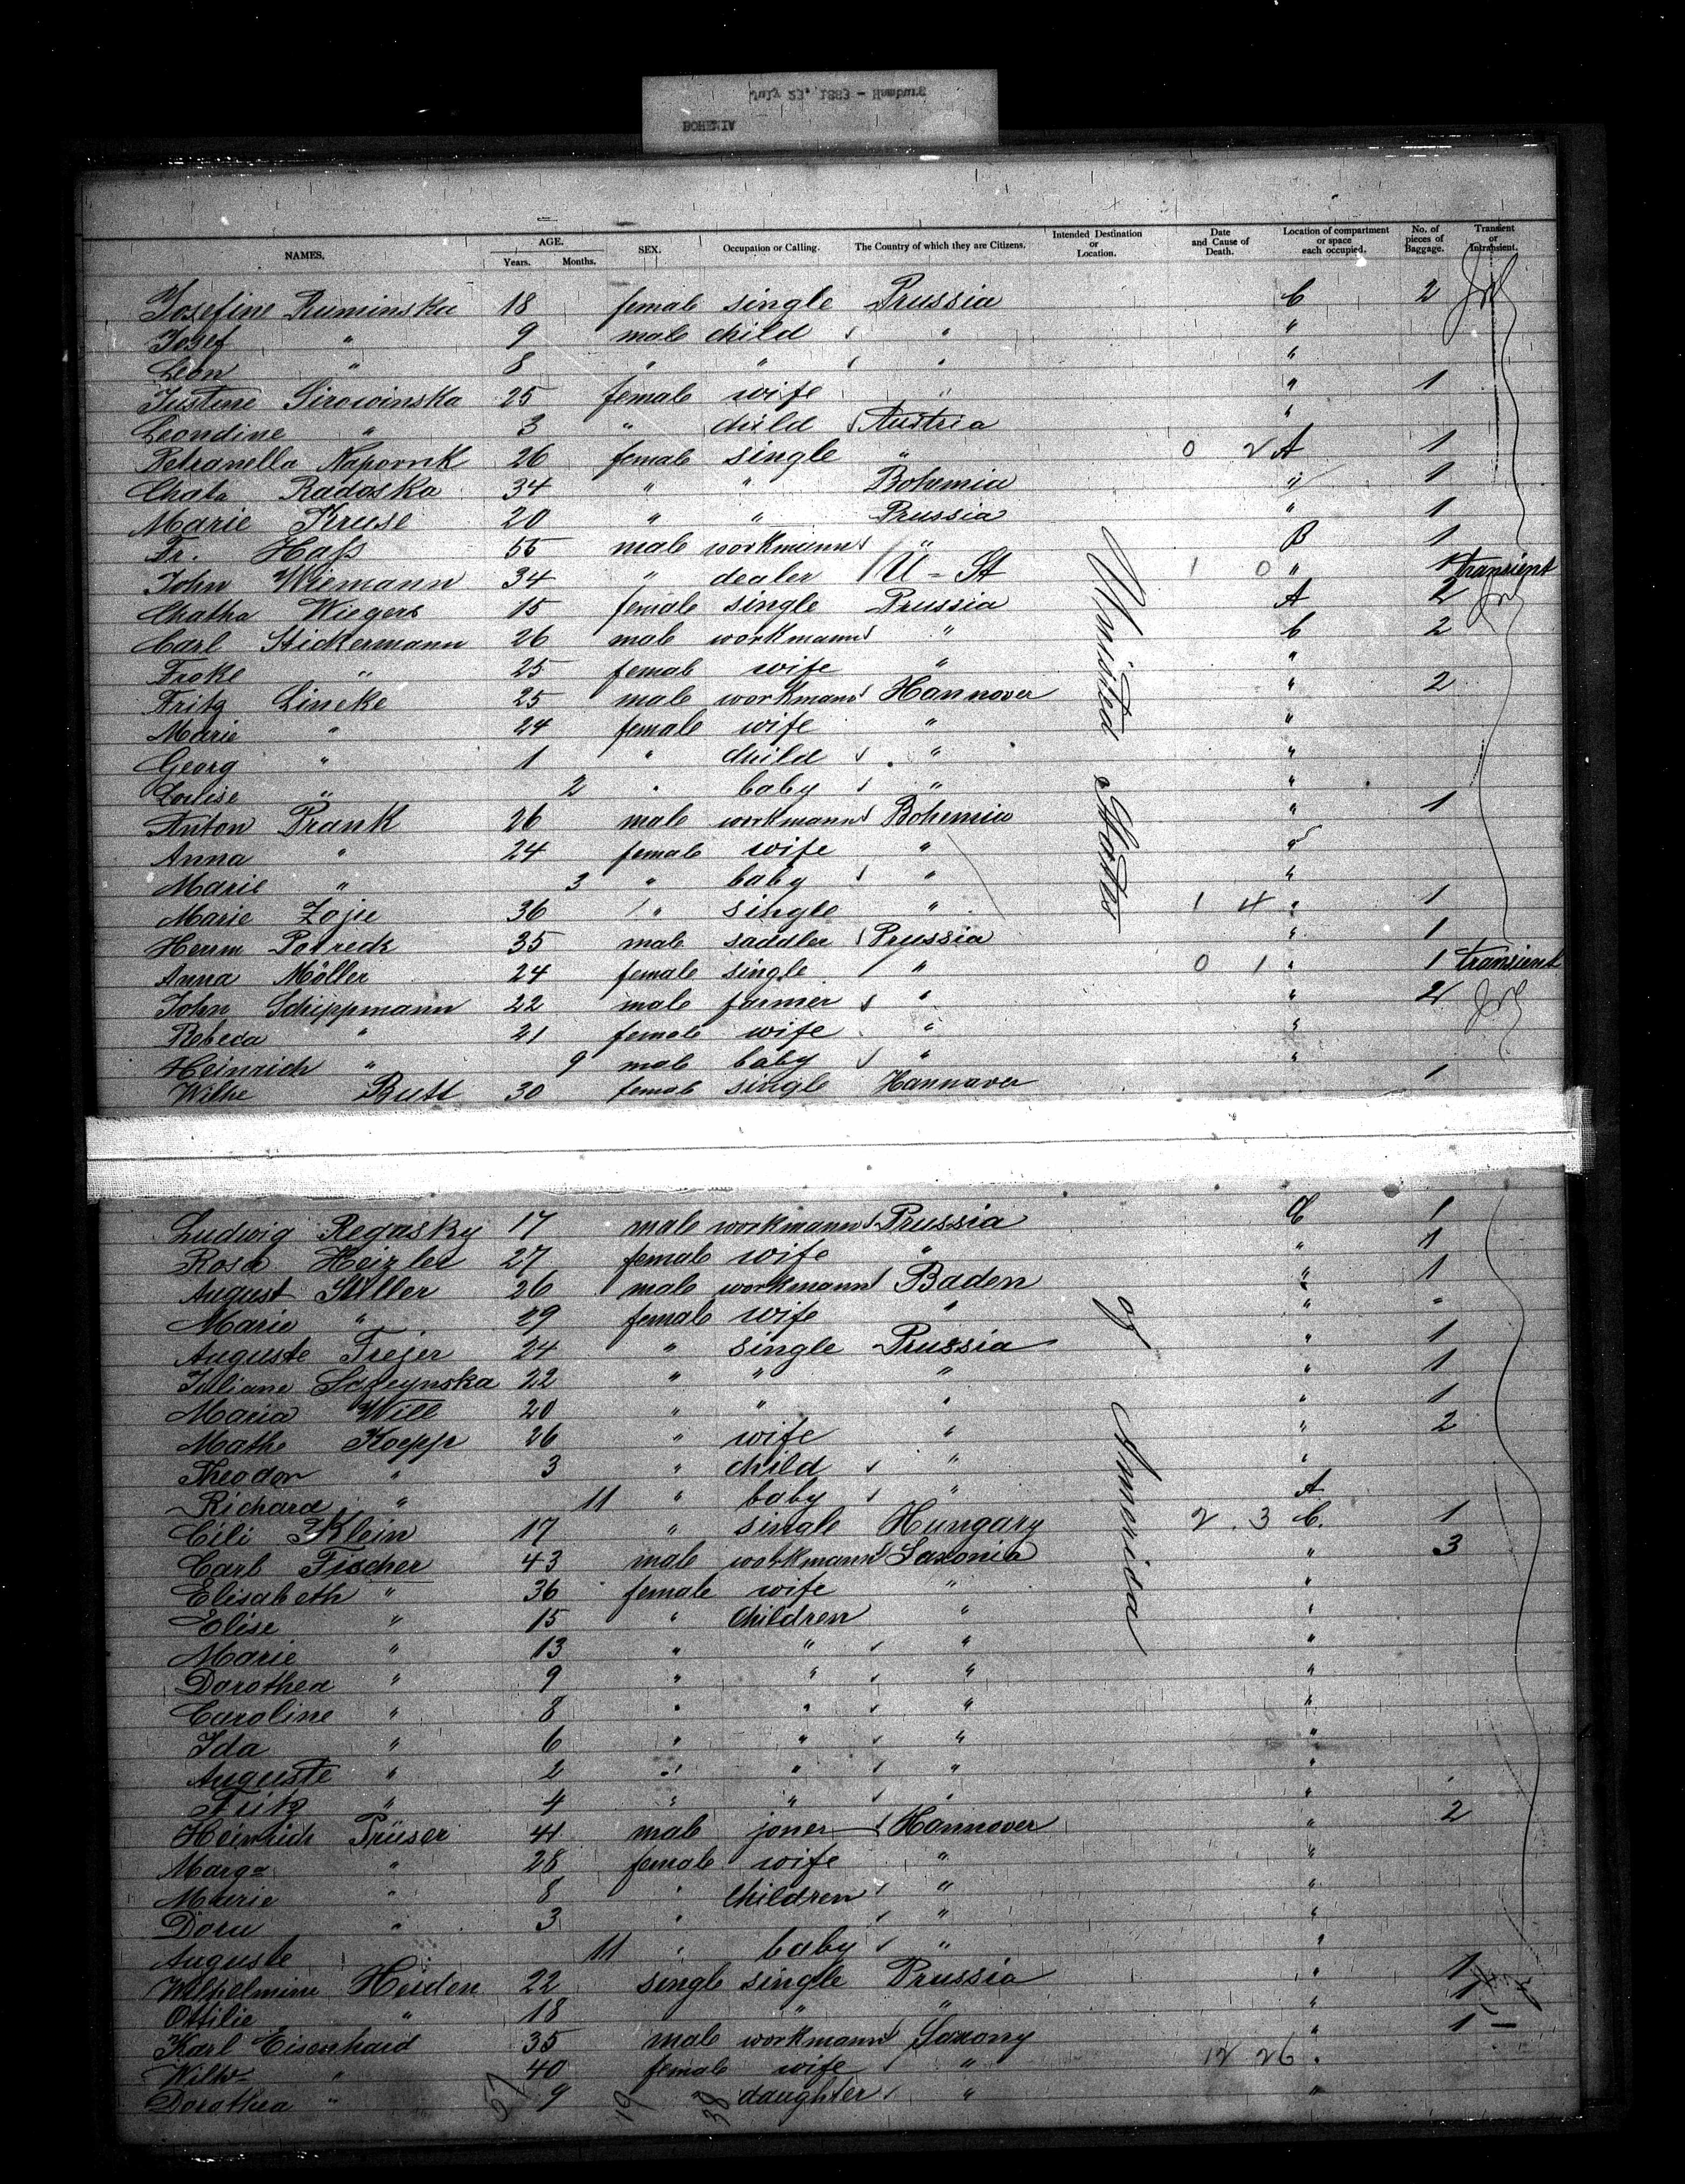 July 23, 1883 - Hamburg
BOHEMIA
NAMES. AGE. Years. Months. SEX. Occupation or Calling. The Country of which they are Citizens. Intended Destination or Location. Date and Cause of Death. Location of compartment or space each occupied. No. of pieces of Baggage. Transient or Intransient.
Josefine Ruminska 18 female single Prussia C 2
Josef " 9 male child " "
Leon " 8 " " " "
Justine Sirowinska 25 female wife " 1
Leondine " 3 " child Austria "
Petranella Napornik 26 female single " 0 2 A 1
Chata Radoska 34 " " Bohemia " 1
Marie Kruse 20 " " Prussia " 1
Fr. Hass 55 male workmann " B 1
John Wiemann 34 " dealer U-St 1 0 " 1 transient
Chatha Wiegers 15 female single Prussia A 2
Carl Stickermann 26 male workmann " C 2
Froke " 25 female wife " "
Fritz Lineke 25 male workmann Hannover " 2
Marie " 24 female wife " "
Georg " 1 " child " "
Louise " 2 " baby " "
Anton Prank 26 male workmann Bohemia " 1
Anna " 24 female wife " "
Marie " 3 " baby " "
Marie Zojie 36 " single " 1 4 " 1
Herm Potreck 35 male saddler Prussia " 1
Anna Möller 24 female single " 0 1 " 1 transient
John Schippmann 22 male farmer " " 2
Rebeca " 21 female wife " "
Heinrich " 9 male baby " "
Wilhe Butt 30 female single Hannover 1
Ludwig Regasky 17 male workmann Prussia C 1
Rosa Heizler 27 female wife " " 1
August Stiller 26 male workmann Baden " 1
Marie " 29 female wife " " "
Auguste Frejer 24 " single Prussia " 1
Juliane Sczeynska 22 " " " " 1
Maria Will 20 " " " " 1
Mathe Koepp 26 " wife " " 2
Theodor " 3 " child " "
Richard " 11 " baby " A
Cili Klein 17 " single Hungary 2. 3 C. 1
Carl Fischer 43 male workmann Saxonia " 3
Elisabeth " 36 female wife " "
Elise " 15 " children " "
Marie " 13 " " " "
Dorothea " 9 " " " "
Caroline " 8 " " " "
Ida " 6 " " " "
Auguste " 2 " " " "
Fritz " 4 " " " "
Heinrich Prüser 41 male joner Hannover " 2
Marga " 28 female wife " "
Marie " 8 " children " "
Dora " 3 " " "
Auguste 11 " baby " "
Wilhelmine Heiden 22 single single Prussia " 1
Ottilie " 18 " " " 1
Karl Eisenhard 35 male workmann Saxony " 1 -
Wilhe " 40 female wife " 12 26 "
Dorothea " 9 daughter " "
57 19 38
Unnited States
of America